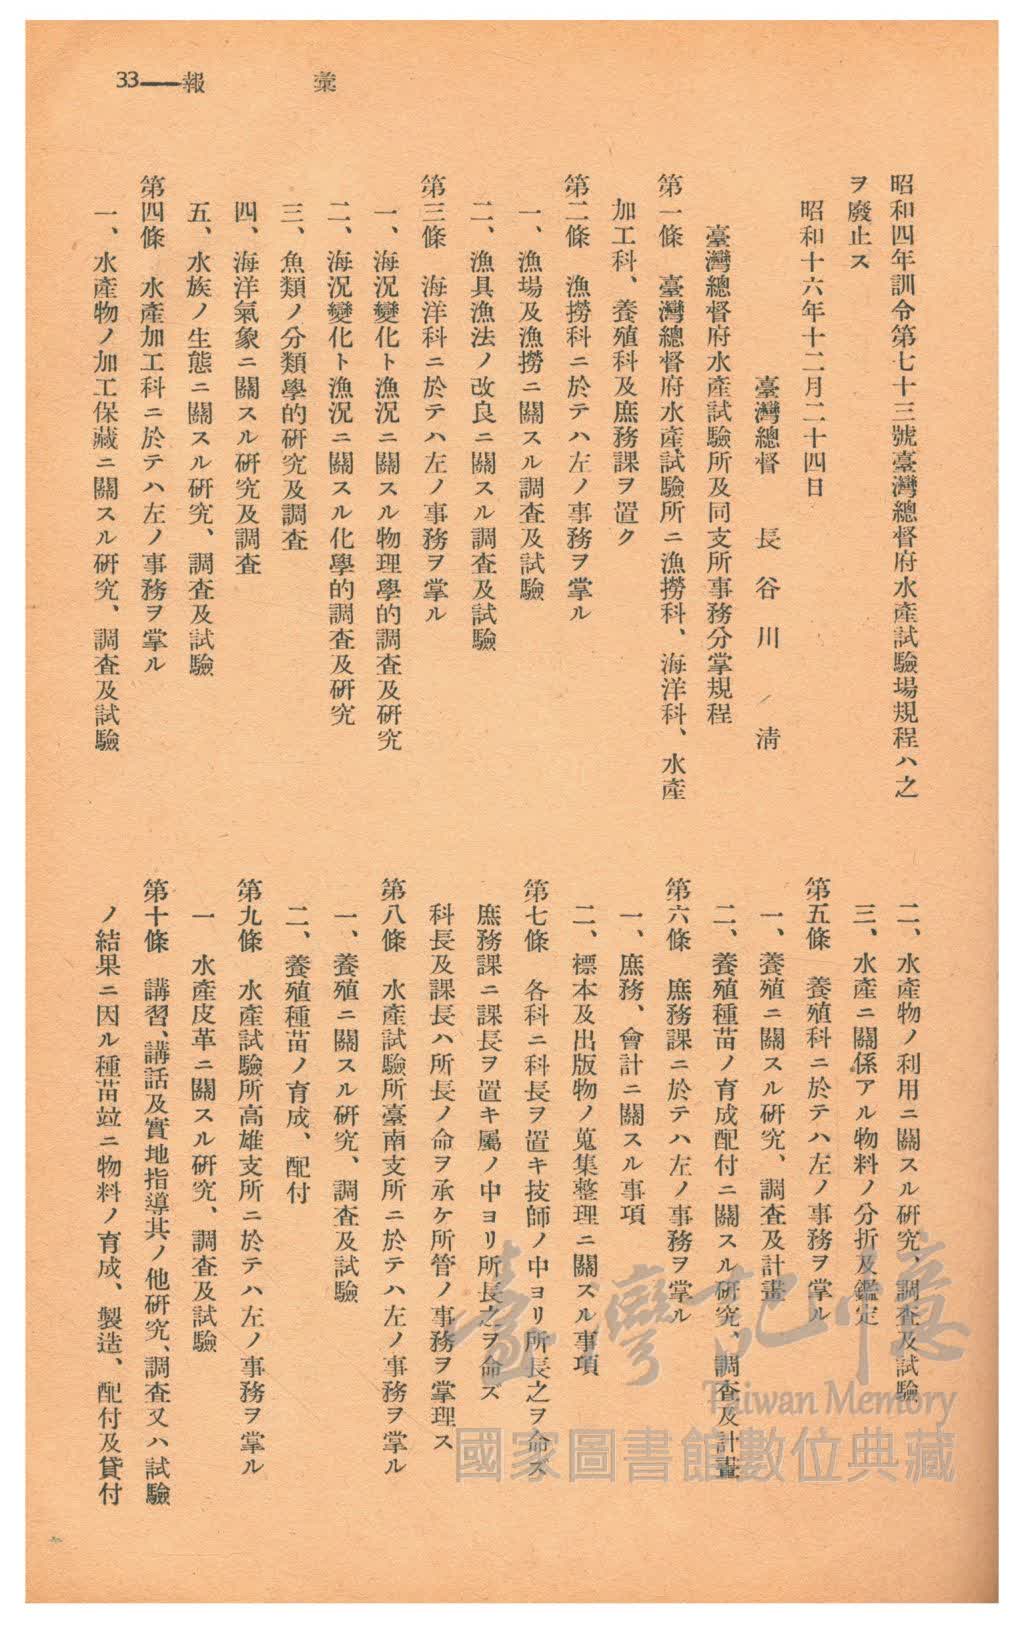 33——報　彙
昭和四年訓令第七十三號臺灣總督府水產試驗場規程ハ之
ヲ廢止ス
昭和十六年十二月二十四日
臺灣總督　長谷川　淸
臺灣總督府水產試驗所及同支所事務分掌規程
第一條　臺灣總督府水產試驗所ニ漁撈科、海洋科、水產
加工科、養殖科及庶務課ヲ置ク
第二條　漁撈科ニ於テハ左ノ事務ヲ掌ル
一、漁場及漁撈ニ關スル調査及試驗
二、漁具漁法ノ改良ニ關スル調査及試驗
第三條　海洋科ニ於テハ左ノ事務ヲ掌ル
一、海況變化ト漁況ニ關スル物理學的調査及硏究
二、海況變化ト漁況ニ關スル化學的調査及硏究
三、魚類ノ分類學的硏究及調査
四、海洋氣象ニ關スル硏究及調査
五、水族ノ生態ニ關スル硏究、調査及試驗
第四條　水產加工科ニ於テハ左ノ事務ヲ掌ル
一、水產物ノ加工保藏ニ關スル硏究、調査及試驗
二、水產物ノ利用ニ關スル硏究、調査及試驗
三、水產ニ關係アル物料ノ分折及鑑定
第五條　養殖科ニ於テハ左ノ事務ヲ掌ル
一、養殖ニ關スル硏究、調査及計畫
二、養殖種苗ノ育成配付ニ關スル硏究、調査及計畫
第六條　庶務課ニ於テハ左ノ事務ヲ掌ル
一、庶務、會計ニ關スル事項
二、標本及出版物ノ蒐集整理ニ關スル事項
第七條　各科ニ科長ヲ置キ技師ノ中ヨリ所長之ヲ命ズ
庶務課ニ課長ヲ置キ屬ノ中ヨリ所長之ヲ命ズ
科長及課長ハ所長ノ命ヲ承ケ所管ノ事務ヲ掌理ス
第八條　水產試驗所臺南支所ニ於テハ左ノ事務ヲ掌ル
一、養殖ニ關スル硏究、調査及試驗
二、養殖種苗ノ育成、配付
第九條　水產試驗所高雄支所ニ於テハ左ノ事務ヲ掌ル
一　水產皮革ニ關スル硏究、調査及試驗
第十條　講習、講話及實地指導其ノ他硏究、調査又ハ試驗
ノ結果ニ因ル種苗竝ニ物料ノ育成、製造、配付及貸付
臺灣記憶
Taiwan Memory
國家圖書館數位典藏